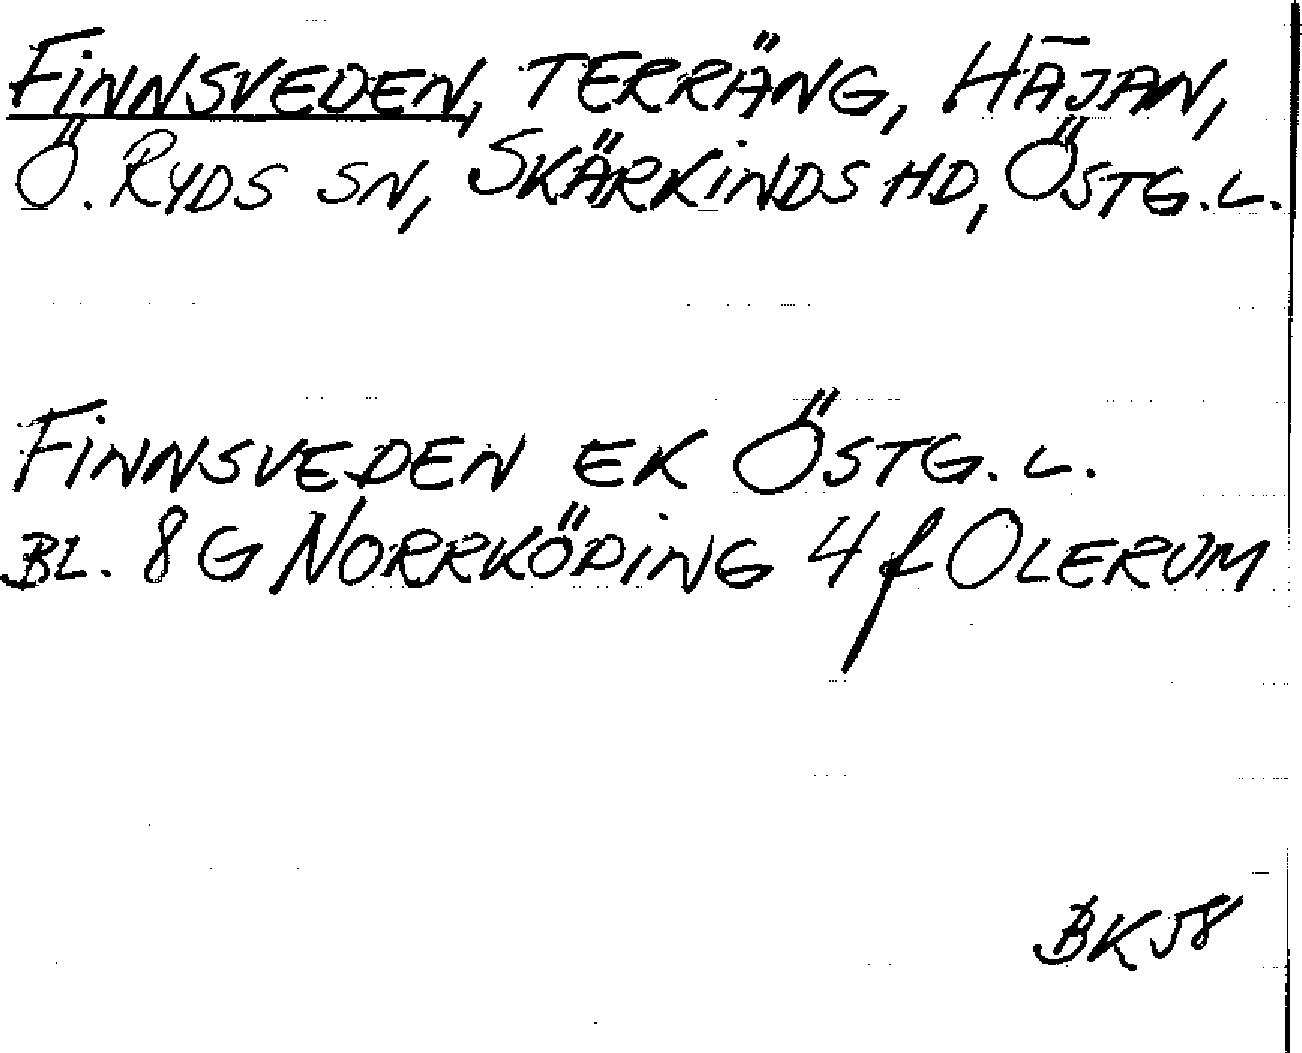 FINNSVEDEN, TERRÄNG, HÄJAN,
Ö. RYDS SN, SKÄRKINDS HD, ÖSTG. L.
FINNSVEDEN EK ÖSTG. L.
BL. 8 G NORRKÖPING 4 f OLERUM
BK58